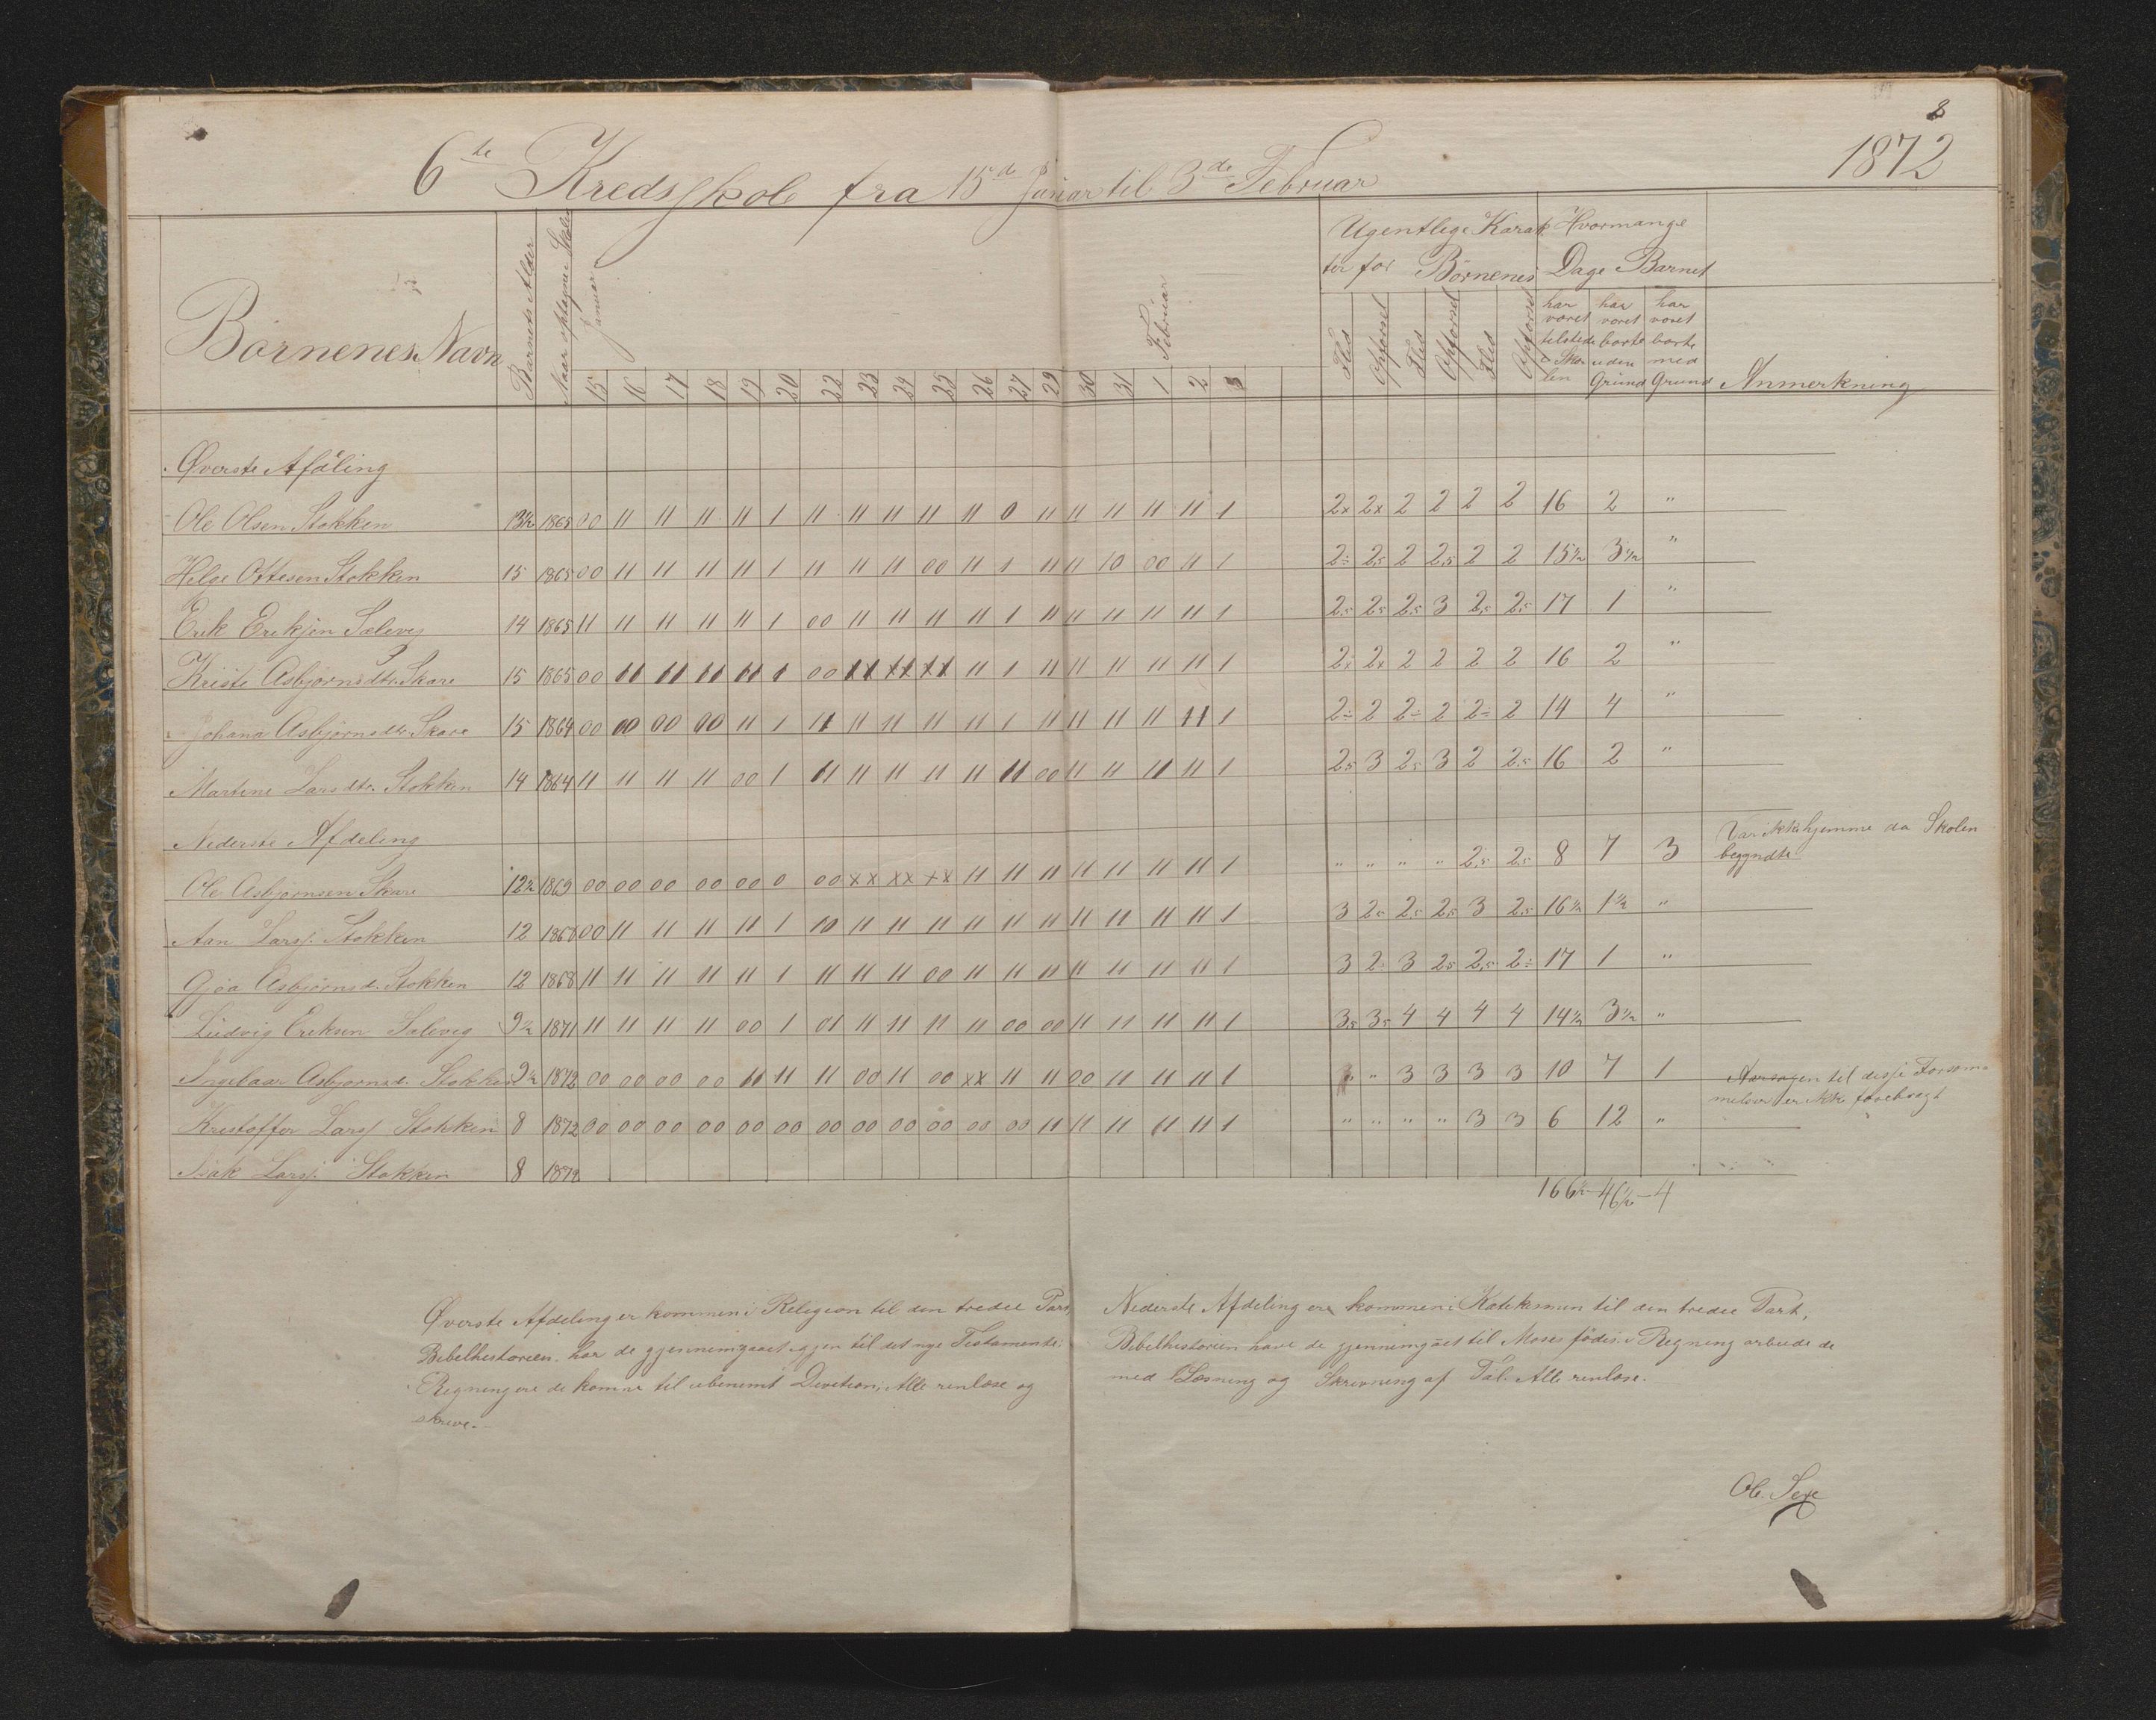 8
1872
6te Kredsskole fra 15de Januar til 3de Februar
Börnenes Navn
Barnets Alder
Naar optagne i Skolen
Januar
Februar
Ugentlige Karak
ter for Börnenes
Hvormange
Dage Barnet
Flid Opförsel Flid Opförsel Flid Opförsel
har været tilstede i Skolen
har været borte uden Grund
har været borte med Grund
Anmerkning
15 16 17 18 19 20 22 23 24 25 26 27 29 30 31 1 2 3
Øverste Afdling
Ole Olsen Stokken 13½ 1865 00 11 11 11 11 1 11 11 11 11 11 0 11 11 11 11 11 1 2x 2x 2 2 2 2 16 2 "
Helge Ottesen Stokken 15 1865 00 11 11 11 11 1 11 11 11 00 11 1 11 11 10 00 11 1 2÷ 2,5 2 2,5 2 2 15½ 3½ "
Erik Eriksen Sæleveg 14 1865 11 11 11 11 11 1 00 11 11 11 11 1 11 11 11 11 11 1 2,5 2,5 2,5 3 2,5 2,5 17 1 "
Kristi Asbjörnsdtr. Skare 15 1865 00 11 11 11 11 1 00 xx xx xx 11 1 11 11 11 11 11 1 2x 2x 2 2 2 2 16 2 "
Johana Asbjörnsdtr. Skare 15 1864 00 00 00 00 11 1 11 11 11 11 11 1 11 11 11 11 11 1 2÷ 2 2÷ 2 2÷ 2 14 4 "
Martine Larsdtr. Stokken 14 1864 11 11 11 11 00 1 11 11 11 11 11 11 00 11 11 11 11 1 2,5 3 2,5 3 2 2,5 16 2 "
Nederste Afdeling
Ole Asbjörnsen Skare 12½ 1869 00 00 00 00 00 0 00 xx xx xx 11 11 11 11 11 11 11 1 " " " " 2,5 2,5 8 7 3 Var ikke hjemme da Skolen
begyndte
Aan Larss. Stokken 12 1868 00 11 11 11 11 1 10 11 11 11 11 11 11 11 11 11 11 1 3 2,5 2,5 2,5 3 2,5 16½ 1½ "
Gjöa Asbjörnsd. Stokken 12 1868 11 11 11 11 11 1 11 11 11 00 11 11 11 11 11 11 11 1 3 2÷ 3 2,5 2,5 2÷ 17 1 "
Ludvig Eriksen Saleveg 9½ 1871 11 11 11 11 00 1 01 11 11 11 11 00 00 11 11 11 11 1 3,5 3,5 4 4 4 4 14½ 3½ "
Ingebaar Asbjornsd. Stokken 9½ 1872 00 00 00 00 11 11 11 00 11 00 xx 11 11 00 11 11 11 1 " " 3 3 3 3 10 7 1 Aarsagen til disse Forsöm
melser er ikke forebragt
Kristoffer Larss Stokken 8 1872 00 00 00 00 00 00 00 00 00 00 00 00 11 11 11 11 11 1 " " " " 3 3 6 12 "
Isak Larss. Stokken 8 1872
166½ - 46½ - 4
Øverste Afdeling er kommen i Religion til den tredie Part,
Bibelhistorien har de gjennemgaaet igjen til det nye Testamente.
Regning ere de komne til ubenemt Divition; Alle renlæse og
skrive.
Nederste Afdeling ere kommen i Katekismen til den tredie Part,
Bibelhistorien have de gjennemgået til Moses födes. Regning arbeide de
med Læsning og Skrivning af Tal. Alle renlæse.
Ol. Sexe